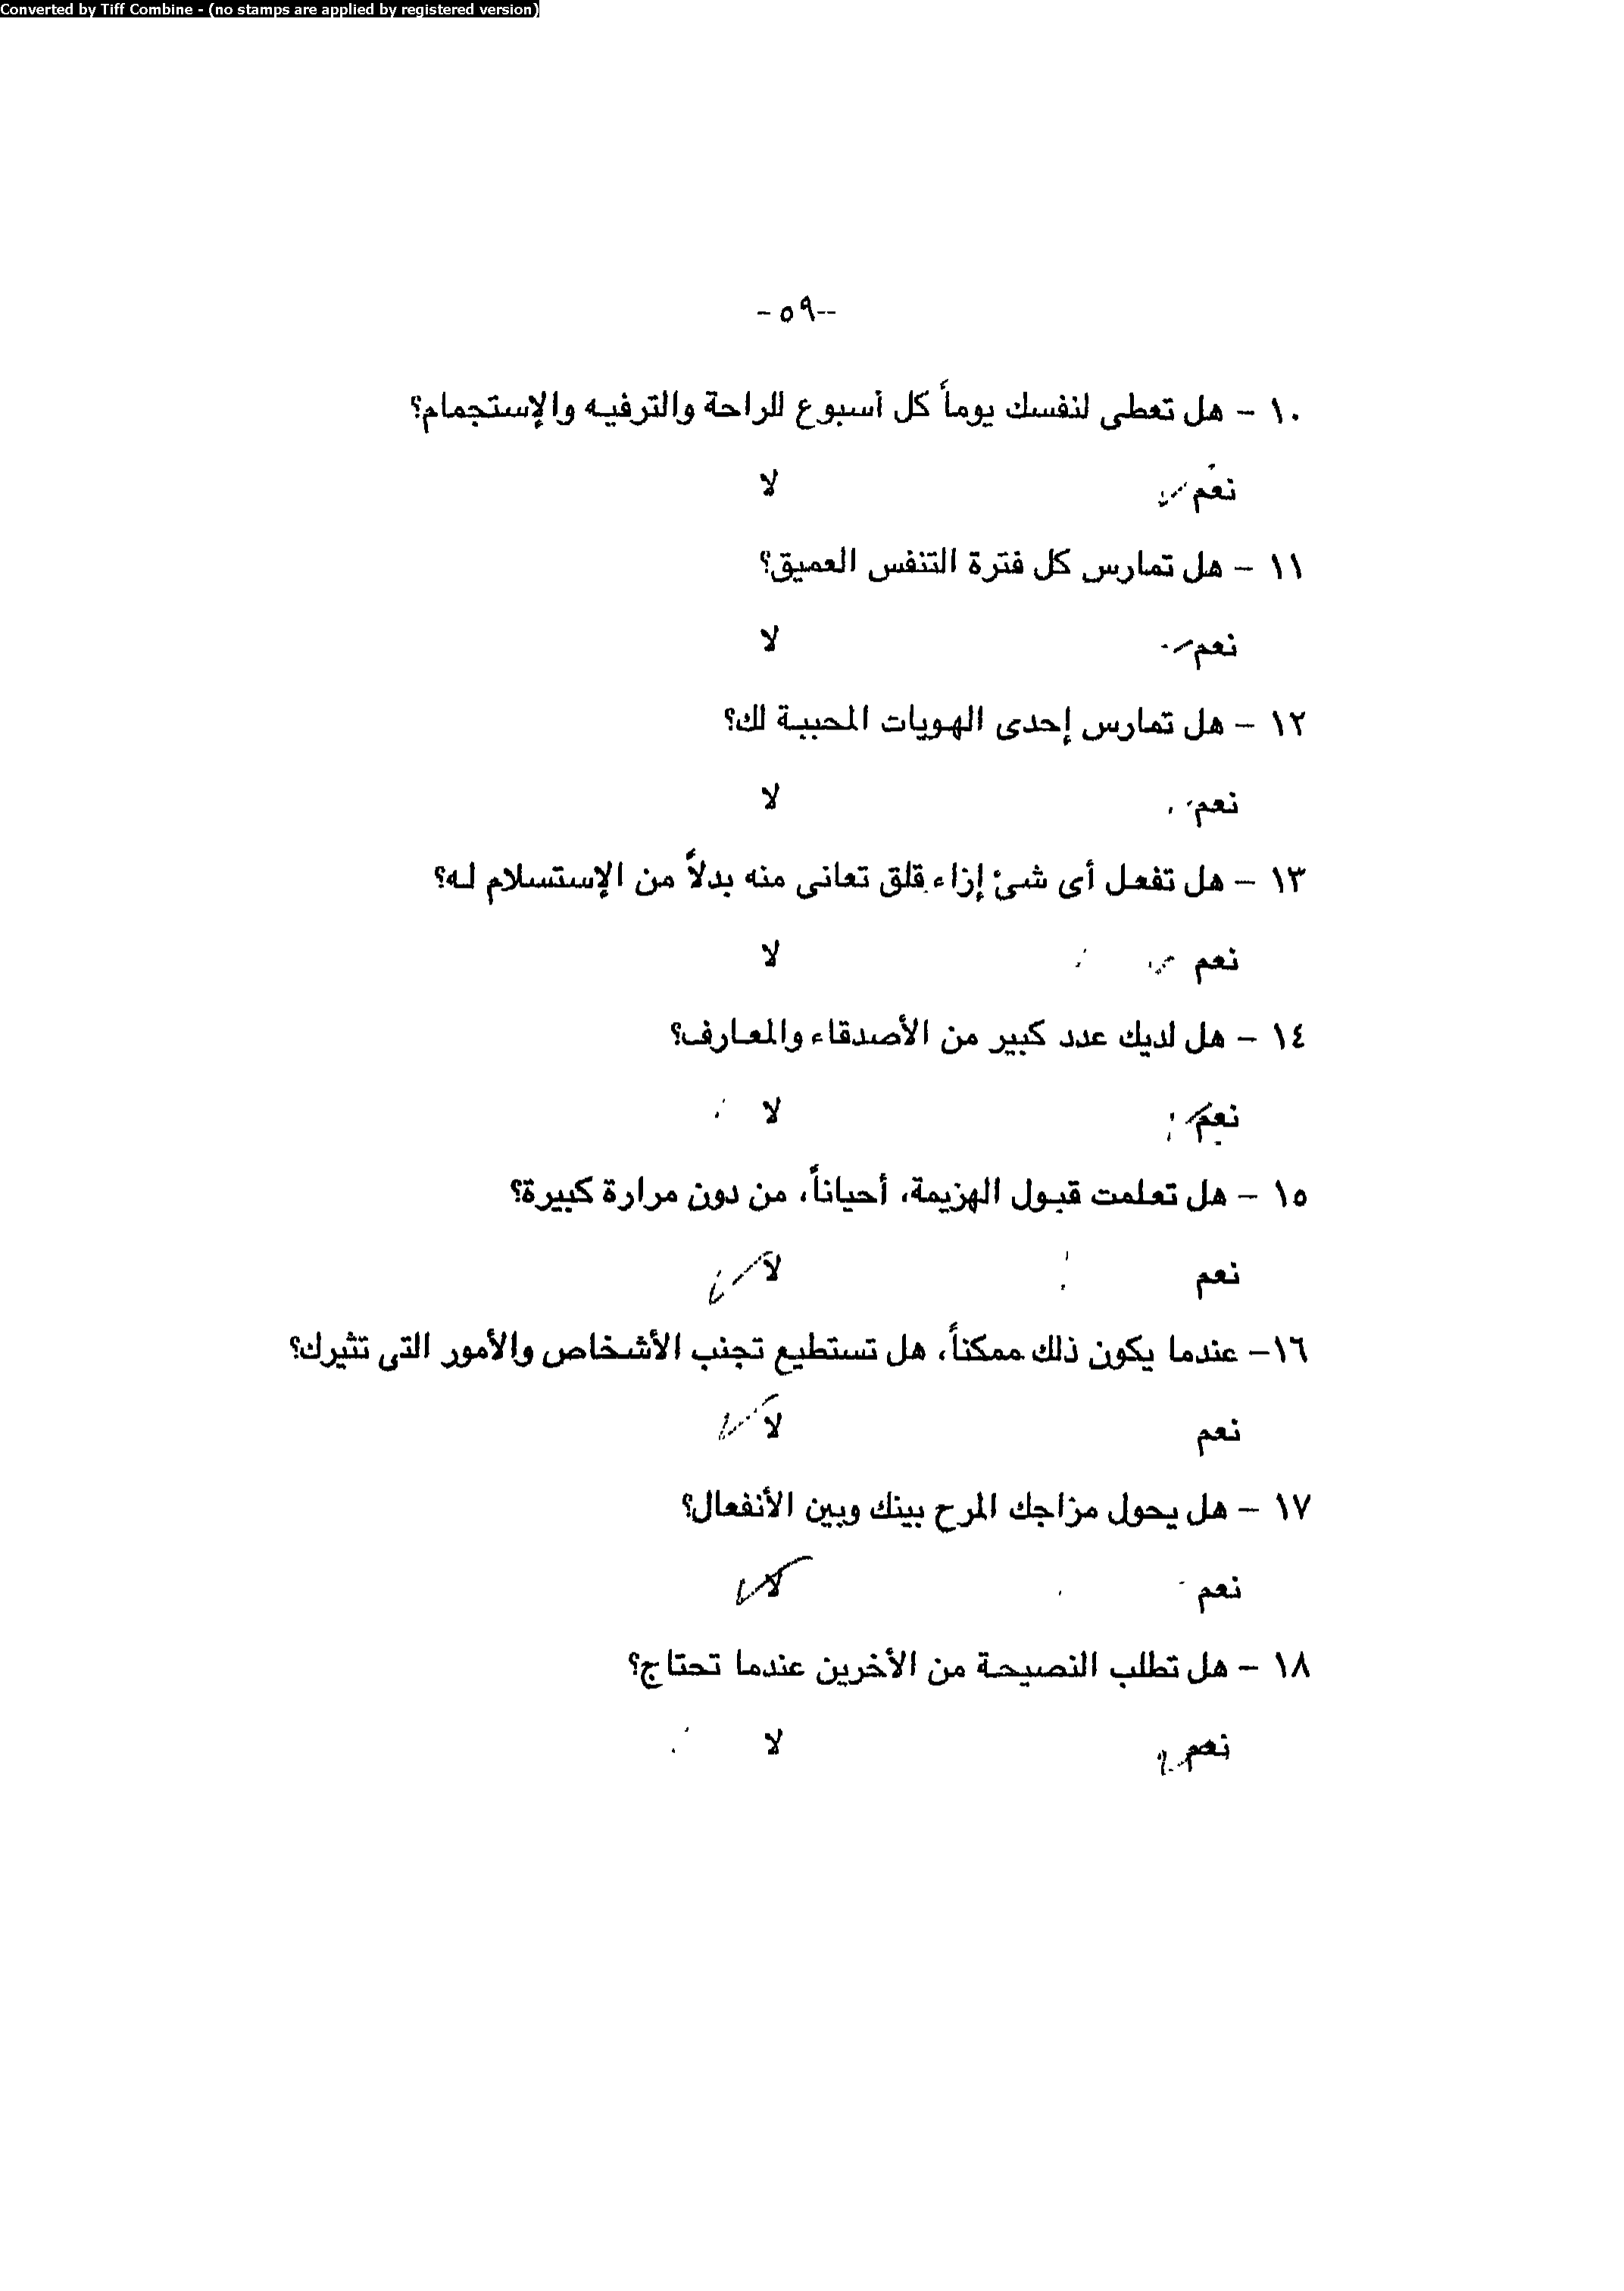 Converted by Tiff Combine - (no stamps are applied by registered version)
--٥٩-
١٠ - هل تعطى لنفسك يوماً كل أسبوع للراحة والترفيه والإستجمام؟
نعم لا
١١ - هل تمارس كل فترة التنفس العميق؟
نعم لا
١٢ - هل تمارس إحدى الهويات المحببة لك؟
نعم لا
١٣ - هل تفعل أى شئ إزاء قلق تعانى منه بدلاً من الإستسلام له؟
نعم لا
١٤ - هل لديك عدد كبير من الأصدقاء والمعارف؟
نعم لا
١٥ - هل تعلمت قبول الهزيمة، أحياناً، من دون مرارة كبيرة؟
نعم لا
١٦- عندما يكون ذلك ممكناً، هل تستطيع تجنب الأشخاص والأمور التى تثيرك؟
نعم لا
١٧ - هل يحول مزاجك المرح بينك وبين الأنفعال؟
نعم لا
١٨ - هل تطلب النصيحة من الأخرين عندما تحتاج؟
نعم لا